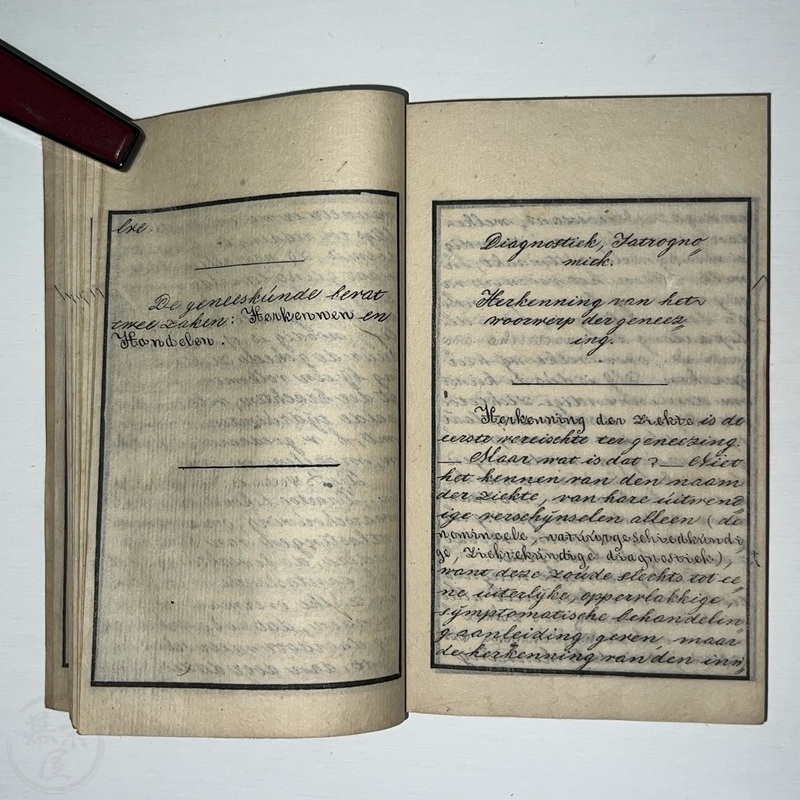 lve.
De geneeskúnde bevat
twee zaken: Herkennen en
Handelen.
Diagnostiek, Jatrogno=
miek.
Herkenning van het
voorwerp der geneez=
ing.
Herkenning der ziekte is de
eerste vereischte ter geneezing.
— Maar wat is dat? — Niet
het kennen van den naam
der ziekte, van hare úitwend=
ige verschÿnselen alleen (de
nomineele, natúúrgeschiedkúndi=
ge, Ziektekúndige diagnostiek),
want deze zoúde slechts tot ee=
ne úiterlÿke, oppervlakkige,
sÿmptomatische behandelin=
g aanleiding geven maar
de herkenning van den inn=